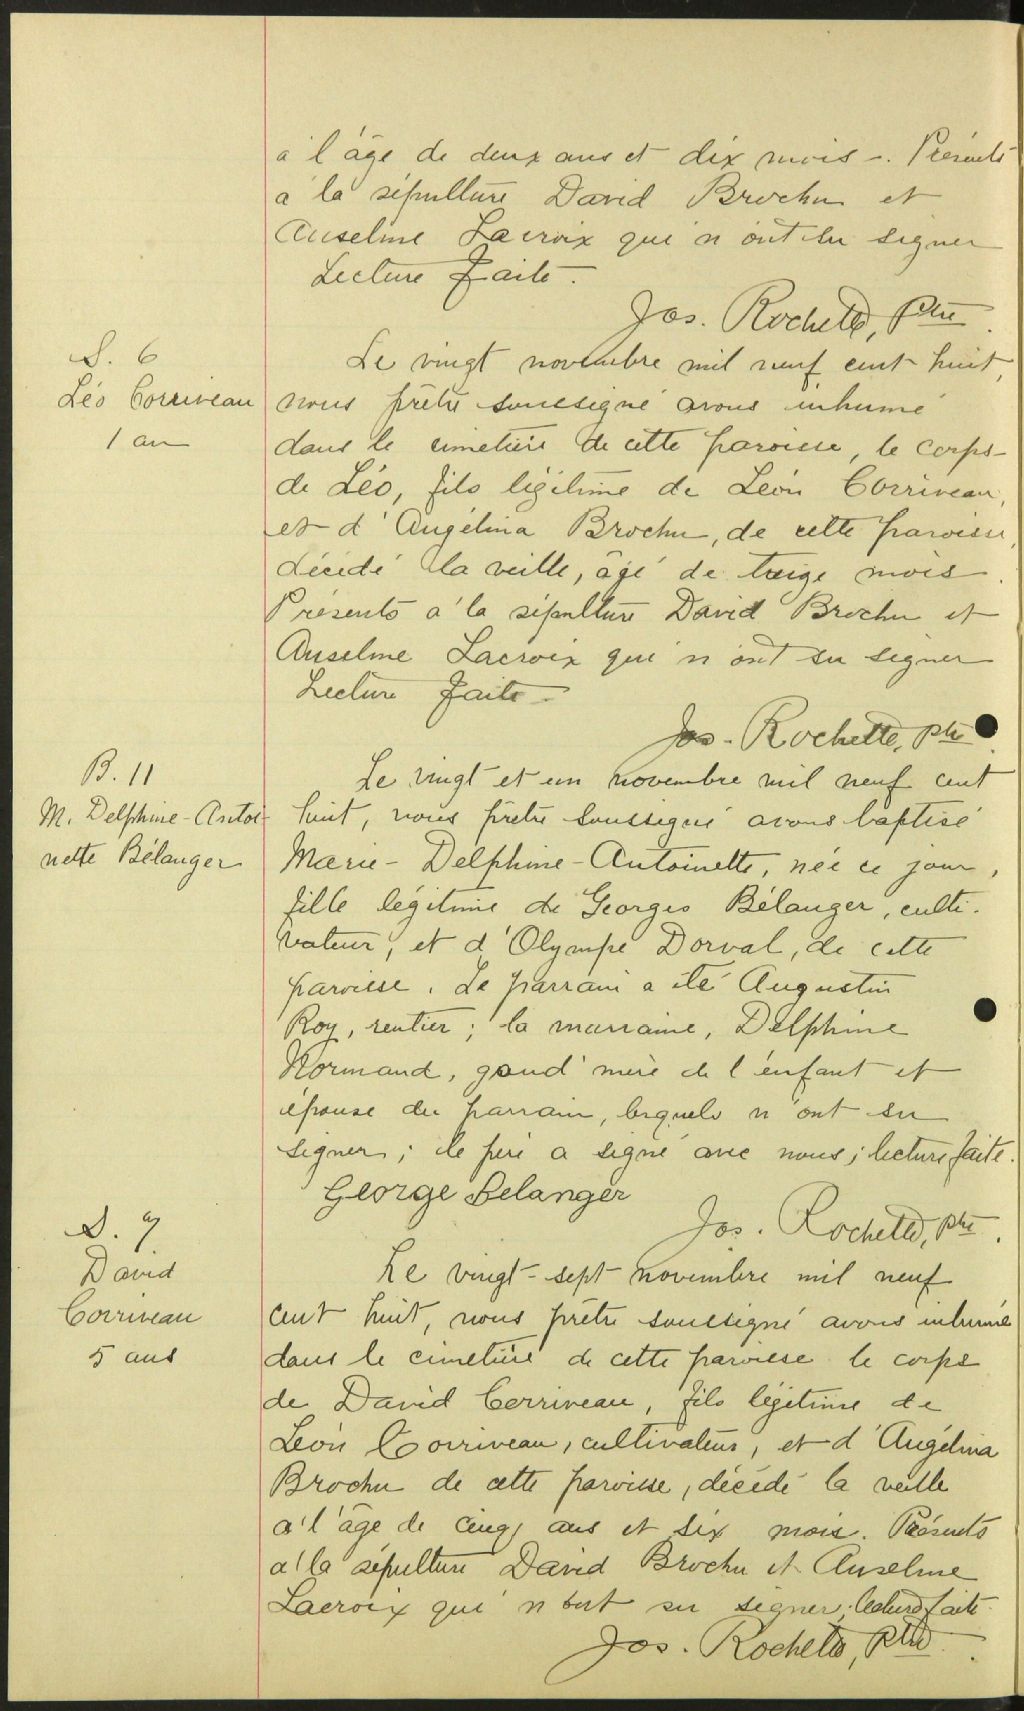 à l'âge de deux ans et dix mois -. Présents
à la sépulture David Brochu et
Anselme Lacroix qui n'ont su signer
Lecture faite.
Jos. Rochette, Ptre.
S. 6
Léo Corriveau
1 an
Le vingt novembre mil neuf cent huit,
nous prêtre soussigné avons inhumé
dans le cimetière de cette paroisse, le corps
de Léo, fils légitime de Léon Corriveau,
et d'Angélina Brochu, de cette paroisse,
décédé la veille, âgé de treize mois.
Présents à la sépulture David Brochu et
Anselme Lacroix qui n'ont su signer
Lecture faite -
Jos. Rochette, Ptre.
B. 11
M. Delphine-Antoi-
nette Bélanger
Le vingt et un novembre mil neuf cent
huit, nous prêtre soussigné avons baptisé
Marie-Delphine-Antoinette, née ce jour,
fille légitime de Georges Bélanger, culti-
vateur, et d'Olympe Dorval, de cette
paroisse. Le parrain a été Augustin
Roy, rentier; la marraine, Delphine
Normand, grand'mère de l'enfant et
épouse du parrain, lesquels n'ont su
signer; le père a signé avec nous; lecture faite.
George Belanger
Jos. Rochette, Ptre.
S. 7
David
Corriveau
5 ans
Le vingt-sept novembre mil neuf
cent huit, nous prêtre soussigné avons inhumé
dans le cimetière de cette paroisse le corps
de David Corriveau, fils légitime de
Léon Corriveau, cultivateur, et d'Angélina
Brochu de cette paroisse, décédé la veille
à l'âge de cinq ans et six mois. Présents
à la sépulture David Brochu et Anselme
Lacroix qui n'ont su signer; lecture faite.
Jos. Rochette, Ptre.